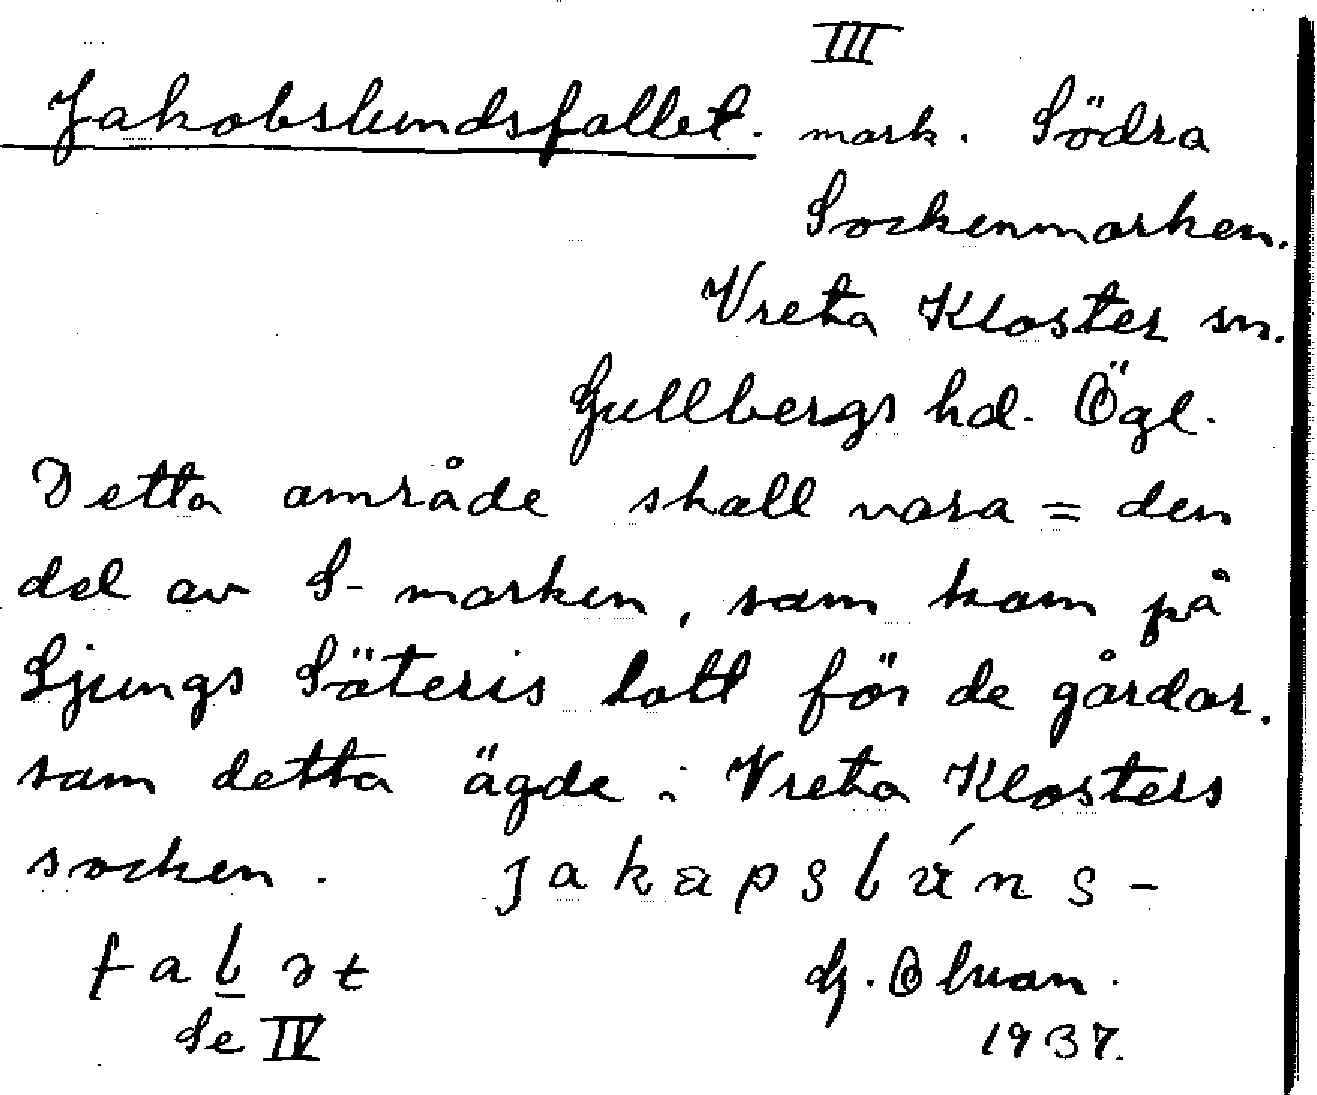 III
Jakobslundsfallet. mark. Södra
Sockenmarken.
Vreta Kloster sn.
Gullbergs hd. Ögl.
Detta område skall vara = den
del av S-marken, som kom på
Ljungs Säteris lott för de gårdar.
som detta ägde i Vreta Klosters
socken. jakapslúns-
falət
Se IV
1937.